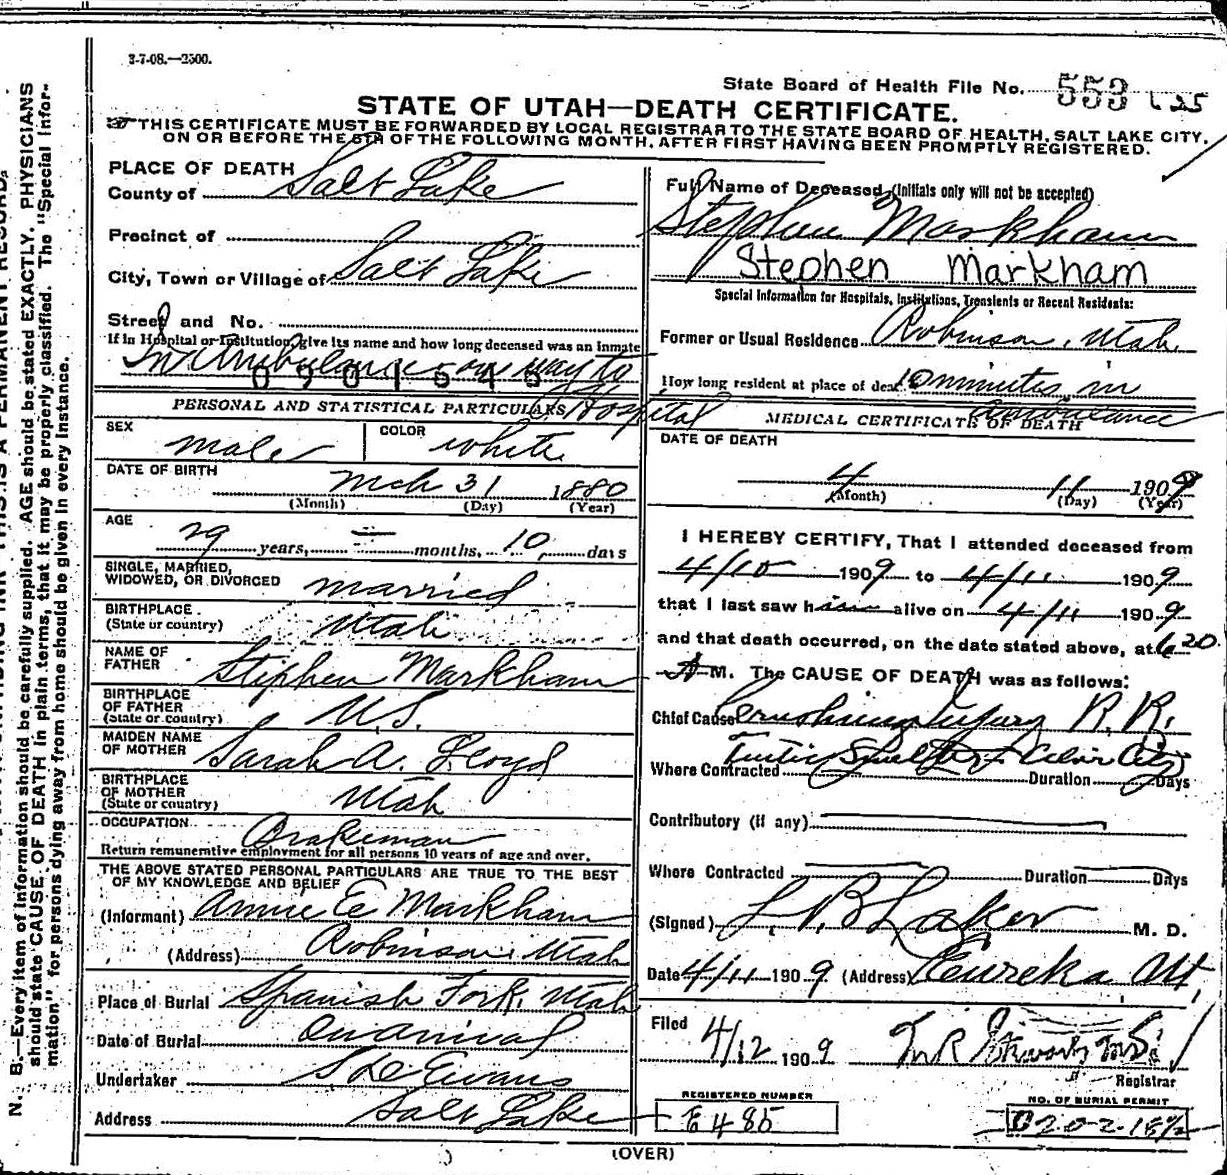 3-7-08.—2500.
State Board of Health File No. 553 625
STATE OF UTAH—DEATH CERTIFICATE.
THIS CERTIFICATE MUST BE FORWARDED BY LOCAL REGISTRAR TO THE STATE BOARD OF HEALTH, SALT LAKE CITY,
ON OR BEFORE THE 5TH OF THE FOLLOWING MONTH, AFTER FIRST HAVING BEEN PROMPTLY REGISTERED.
PLACE OF DEATH
County of Salt Lake
Precinct of
City, Town or Village of Salt Lake
Street and No.
If in Hospital or Institution, give its name and how long deceased was an inmate
In Ambulance on way to
Hospital
0901545
PERSONAL AND STATISTICAL PARTICULARS
SEX male
COLOR white
DATE OF BIRTH
Mch 31 1880
(Month) (Day) (Year)
AGE
29 years, — months, 10 days
SINGLE, MARRIED,
WIDOWED, OR DIVORCED married
BIRTHPLACE
(State or country) Utah
NAME OF
FATHER Stephen Markham
BIRTHPLACE
OF FATHER
(State or country) U.S.
MAIDEN NAME
OF MOTHER Sarah A. Lloyd
BIRTHPLACE
OF MOTHER
(State or country) Utah
OCCUPATION Brakeman
Return remunerative employment for all persons 10 years of age and over.
THE ABOVE STATED PERSONAL PARTICULARS ARE TRUE TO THE BEST
OF MY KNOWLEDGE AND BELIEF
(Informant) Annie E Markham
(Address) Robinson Utah
Place of Burial Spanish Fork, Utah
Date of Burial on arrival
Undertaker S D Evans
Address Salt Lake
Full Name of Deceased (Initials only will not be accepted)
Stephen Markham
Stephen Markham
Special Information for Hospitals, Institutions, Transients or Recent Residents:
Former or Usual Residence Robinson, Utah
How long resident at place of death 10 minutes in
ambulance
MEDICAL CERTIFICATE OF DEATH
DATE OF DEATH
4 11 1909
(Month) (Day) (Year)
I HEREBY CERTIFY, That I attended deceased from
4/10 1909 to 4/11 1909
that I last saw him alive on 4/11 1909
and that death occurred, on the date stated above, at 6 20
A M. The CAUSE OF DEATH was as follows:
Chief Cause Crushing Injury R. R.
Tintic Smelter Silver City
Where Contracted Duration Days
Contributory (if any)
Where Contracted Duration Days
(Signed) L. B Laker M. D.
Date 4/11 1909 (Address) Eureka Ut,
Filed
4/12 1909 T. R Stewart M.D.
Registrar
REGISTERED NUMBER
E 485
NO. OF BURIAL PERMIT
(OVER)
N. B.—Every item of information should be carefully supplied. AGE should be stated EXACTLY. PHYSICIANS
should state CAUSE OF DEATH in plain terms, that it may be properly classified. The "Special Infor-
mation" for persons dying away from home should be given in every instance.